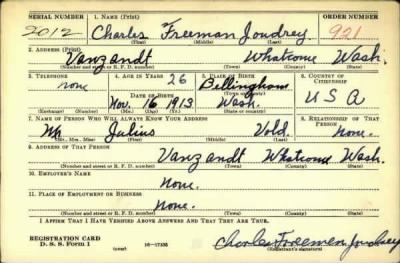 SERIAL NUMBER 1. NAME (Print) ORDER NUMBER
2012 Charles Freeman Joudrey 921
(First) (Middle) (Last)
2. ADDRESS (Print)
Vanzandt Whatcome Wash.
(Number and street or R. F. D. number) (Town) (County) (State)
3. TELEPHONE 4. AGE IN YEARS 5. PLACE OF BIRTH 6. COUNTRY OF CITIZENSHIP
none 26 Bellingham
DATE OF BIRTH (Town or county)
Nov. 16 1913 Wash. U S A
(Exchange) (Number) (Mo.) (Day) (Yr.) (State or country)
7. NAME OF PERSON WHO WILL ALWAYS KNOW YOUR ADDRESS 8. RELATIONSHIP OF THAT PERSON
Mr Julius Vold. None.
(Mr., Mrs., Miss) (First) (Middle) (Last)
9. ADDRESS OF THAT PERSON
Vanzandt Whatcome Wash.
(Number and street or R. F. D. number) (Town) (County) (State)
10. EMPLOYER'S NAME
None.
11. PLACE OF EMPLOYMENT OR BUSINESS
none.
(Number and street or R. F. D. number) (Town) (County) (State)
I AFFIRM THAT I HAVE VERIFIED ABOVE ANSWERS AND THAT THEY ARE TRUE.
REGISTRATION CARD
D. S. S. Form 1 (over) 16-17105 Charles Freeman Joudrey
(Registrant's signature)